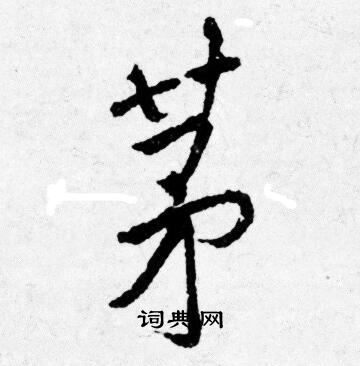 茅
词典网